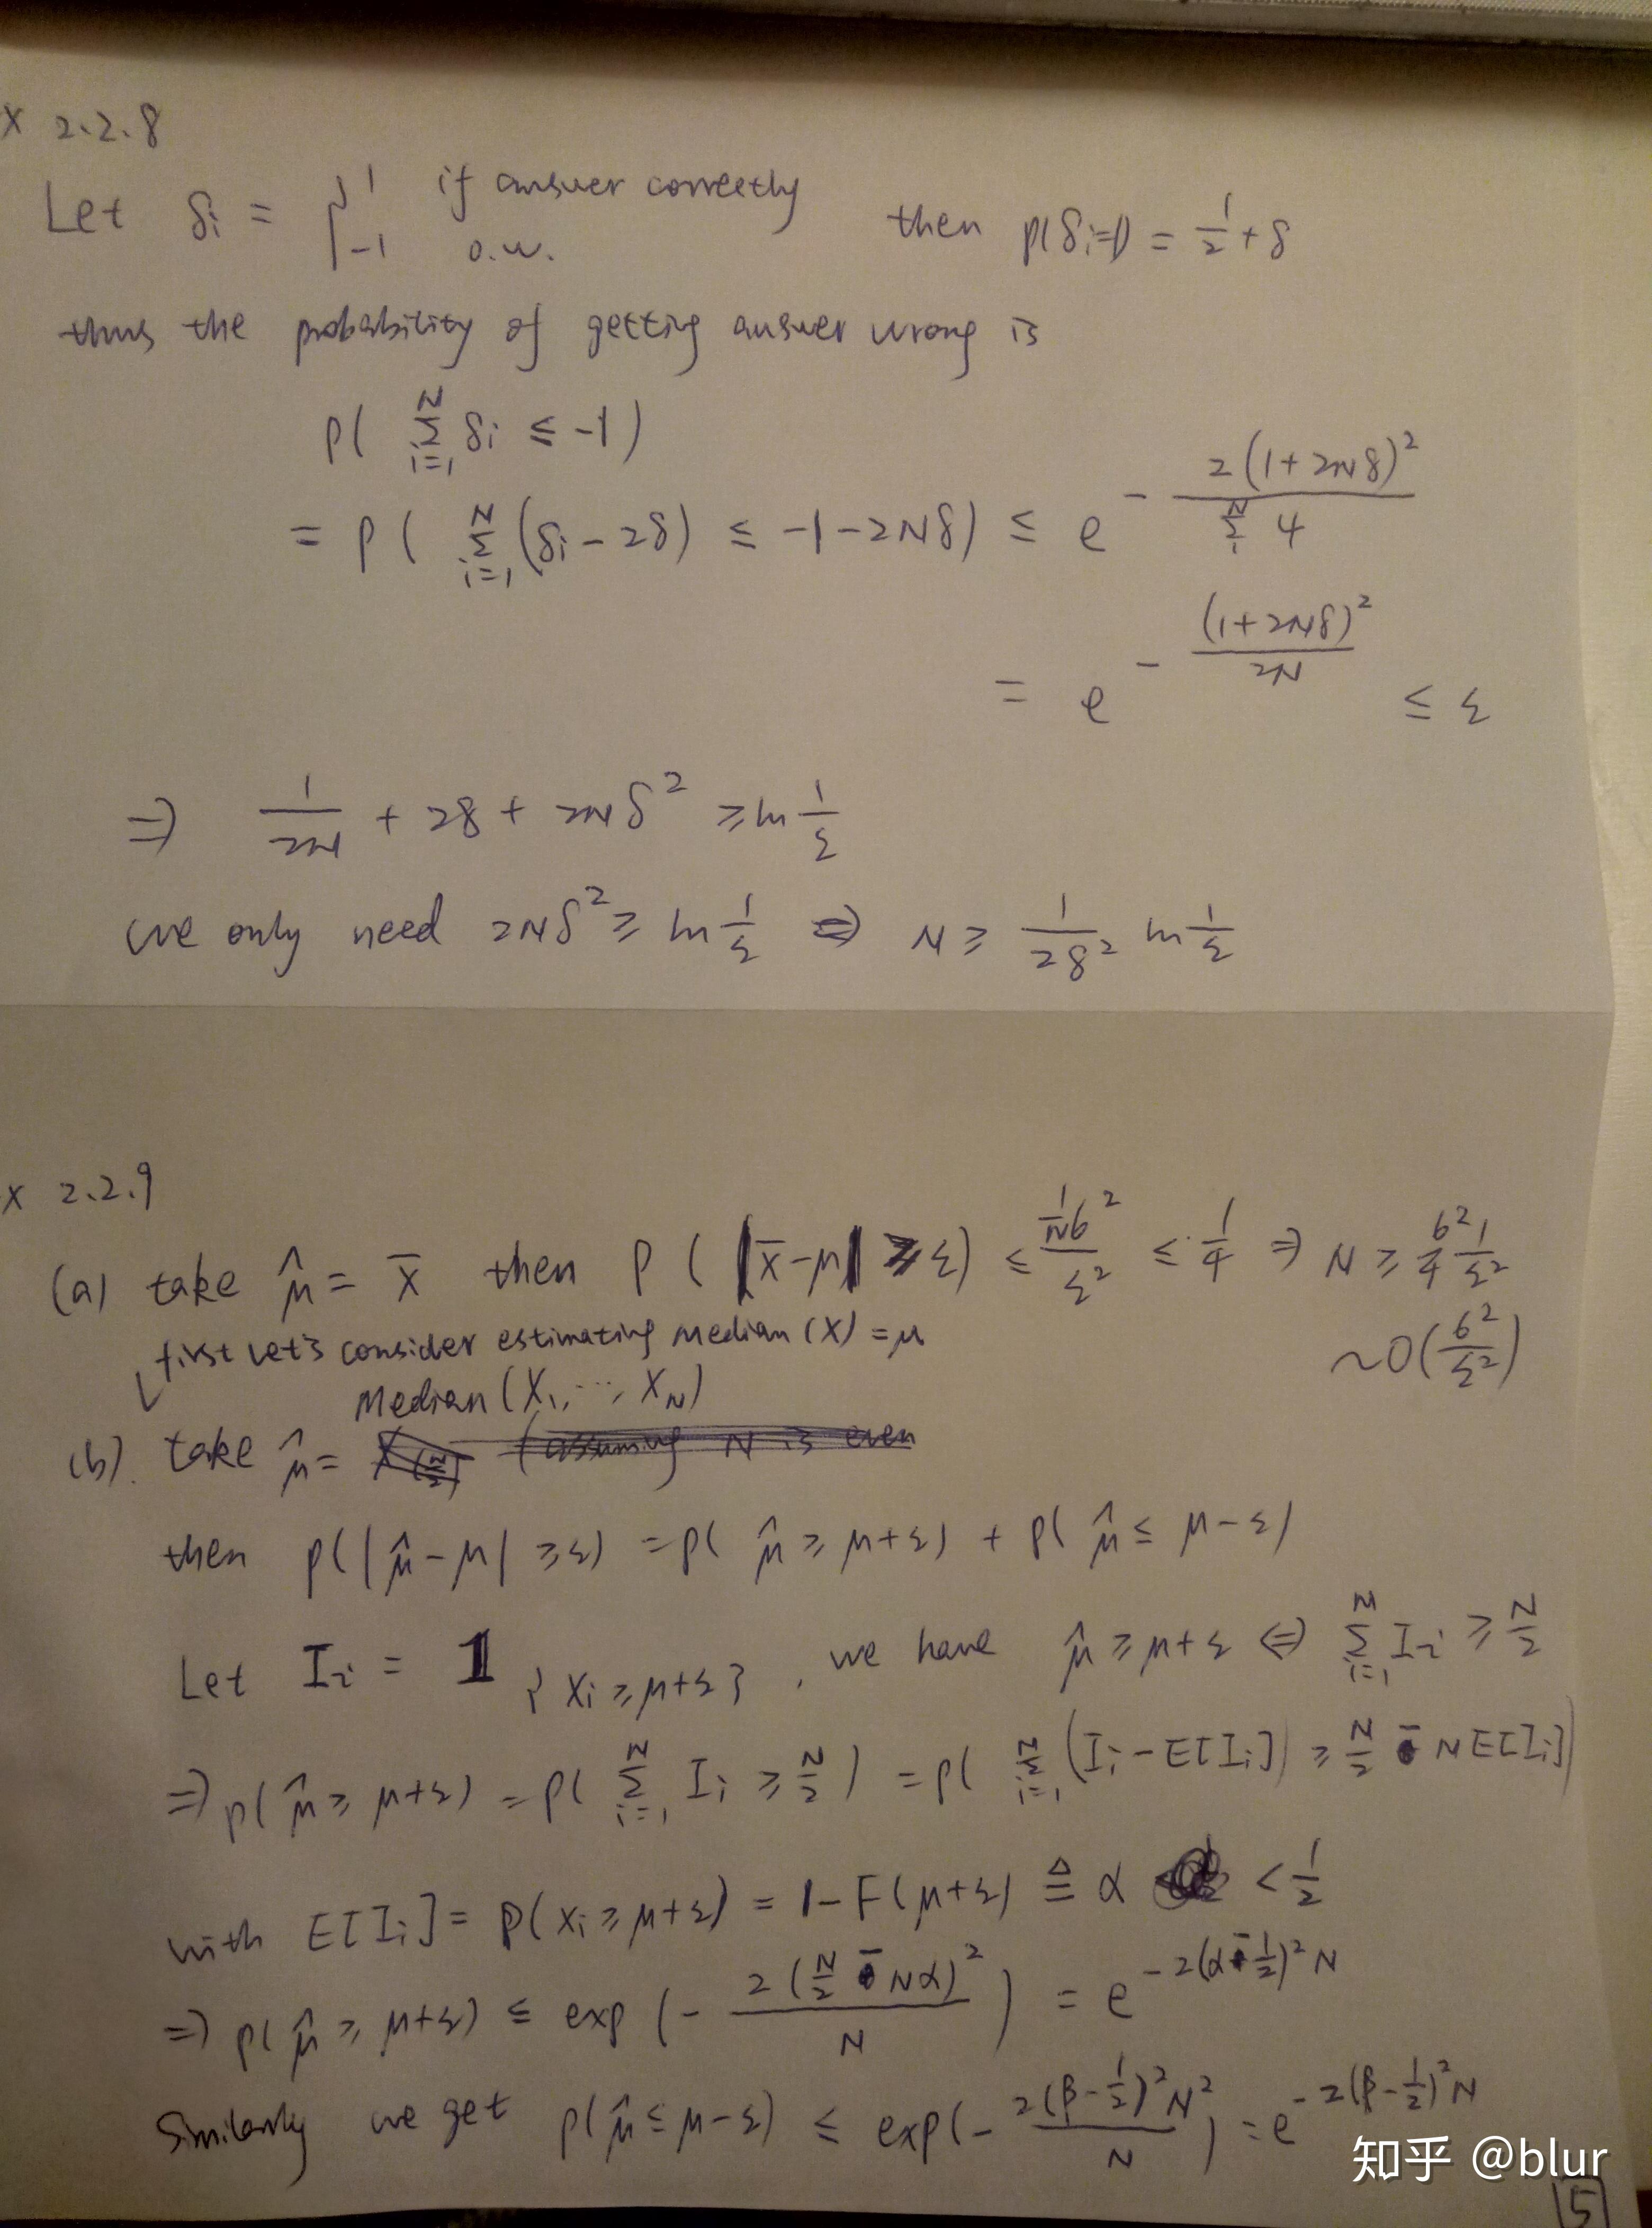 x 2.2.8
Let δi = { 1 if answer correctly
-1 o.w.
then p(δi=1) = 1/2 + δ
thus the probability of getting answer wrong is
P( Σ_{i=1}^N δi ≤ -1 )
= P( Σ_{i=1}^N (δi - 2δ) ≤ -1 - 2Nδ ) ≤ e^{- 2(1+2Nδ)^2 / Σ_1^N 4}
= e^{- (1+2Nδ)^2 / 2N} ≤ ε
⇒ 1/2N + 2δ + 2Nδ^2 ≥ ln 1/ε
we only need 2Nδ^2 ≥ ln 1/ε ⇔ N ≥ 1/2δ^2 ln 1/ε
x 2.2.9
(a) take μ̂ = x̄ then P( |x̄-μ| ≥ ε) ≤ 1/N σ^2 / ε^2 ≤ 1/4 ⇒ N ≥ σ^2/4 1/ε^2
~ O(σ^2/ε^2)
first let's consider estimating Median(X) = μ
Median(X1, ..., XN)
(b). take μ̂ = X(N/2) (assuming N is even
then p(|μ̂-μ| ≥ ε) = p( μ̂ ≥ μ+ε) + p( μ̂ ≤ μ-ε)
Let Ii = 1{xi ≥ μ+ε}, we have μ̂ ≥ μ+ε ⇔ Σ_{i=1}^N Ii ≥ N/2
⇒ p( μ̂ ≥ μ+ε) = p( Σ_{i=1}^N Ii ≥ N/2 ) = p( Σ_{i=1}^N (Ii - E[Ii]) ≥ N/2 - N E[Ii])
with E[Ii] = p(xi ≥ μ+ε) = 1 - F(μ+ε) ≜ α < 1/2
⇒ p( μ̂ ≥ μ+ε) ≤ exp(- 2(N/2 - Nα)^2 / N ) = e^{-2(α-1/2)^2 N}
Similarly we get p(μ̂ ≤ μ-ε) ≤ exp(- 2(β-1/2)^2 N^2 / N ) = e^{-2(β-1/2)^2 N}
知乎 @blur
5